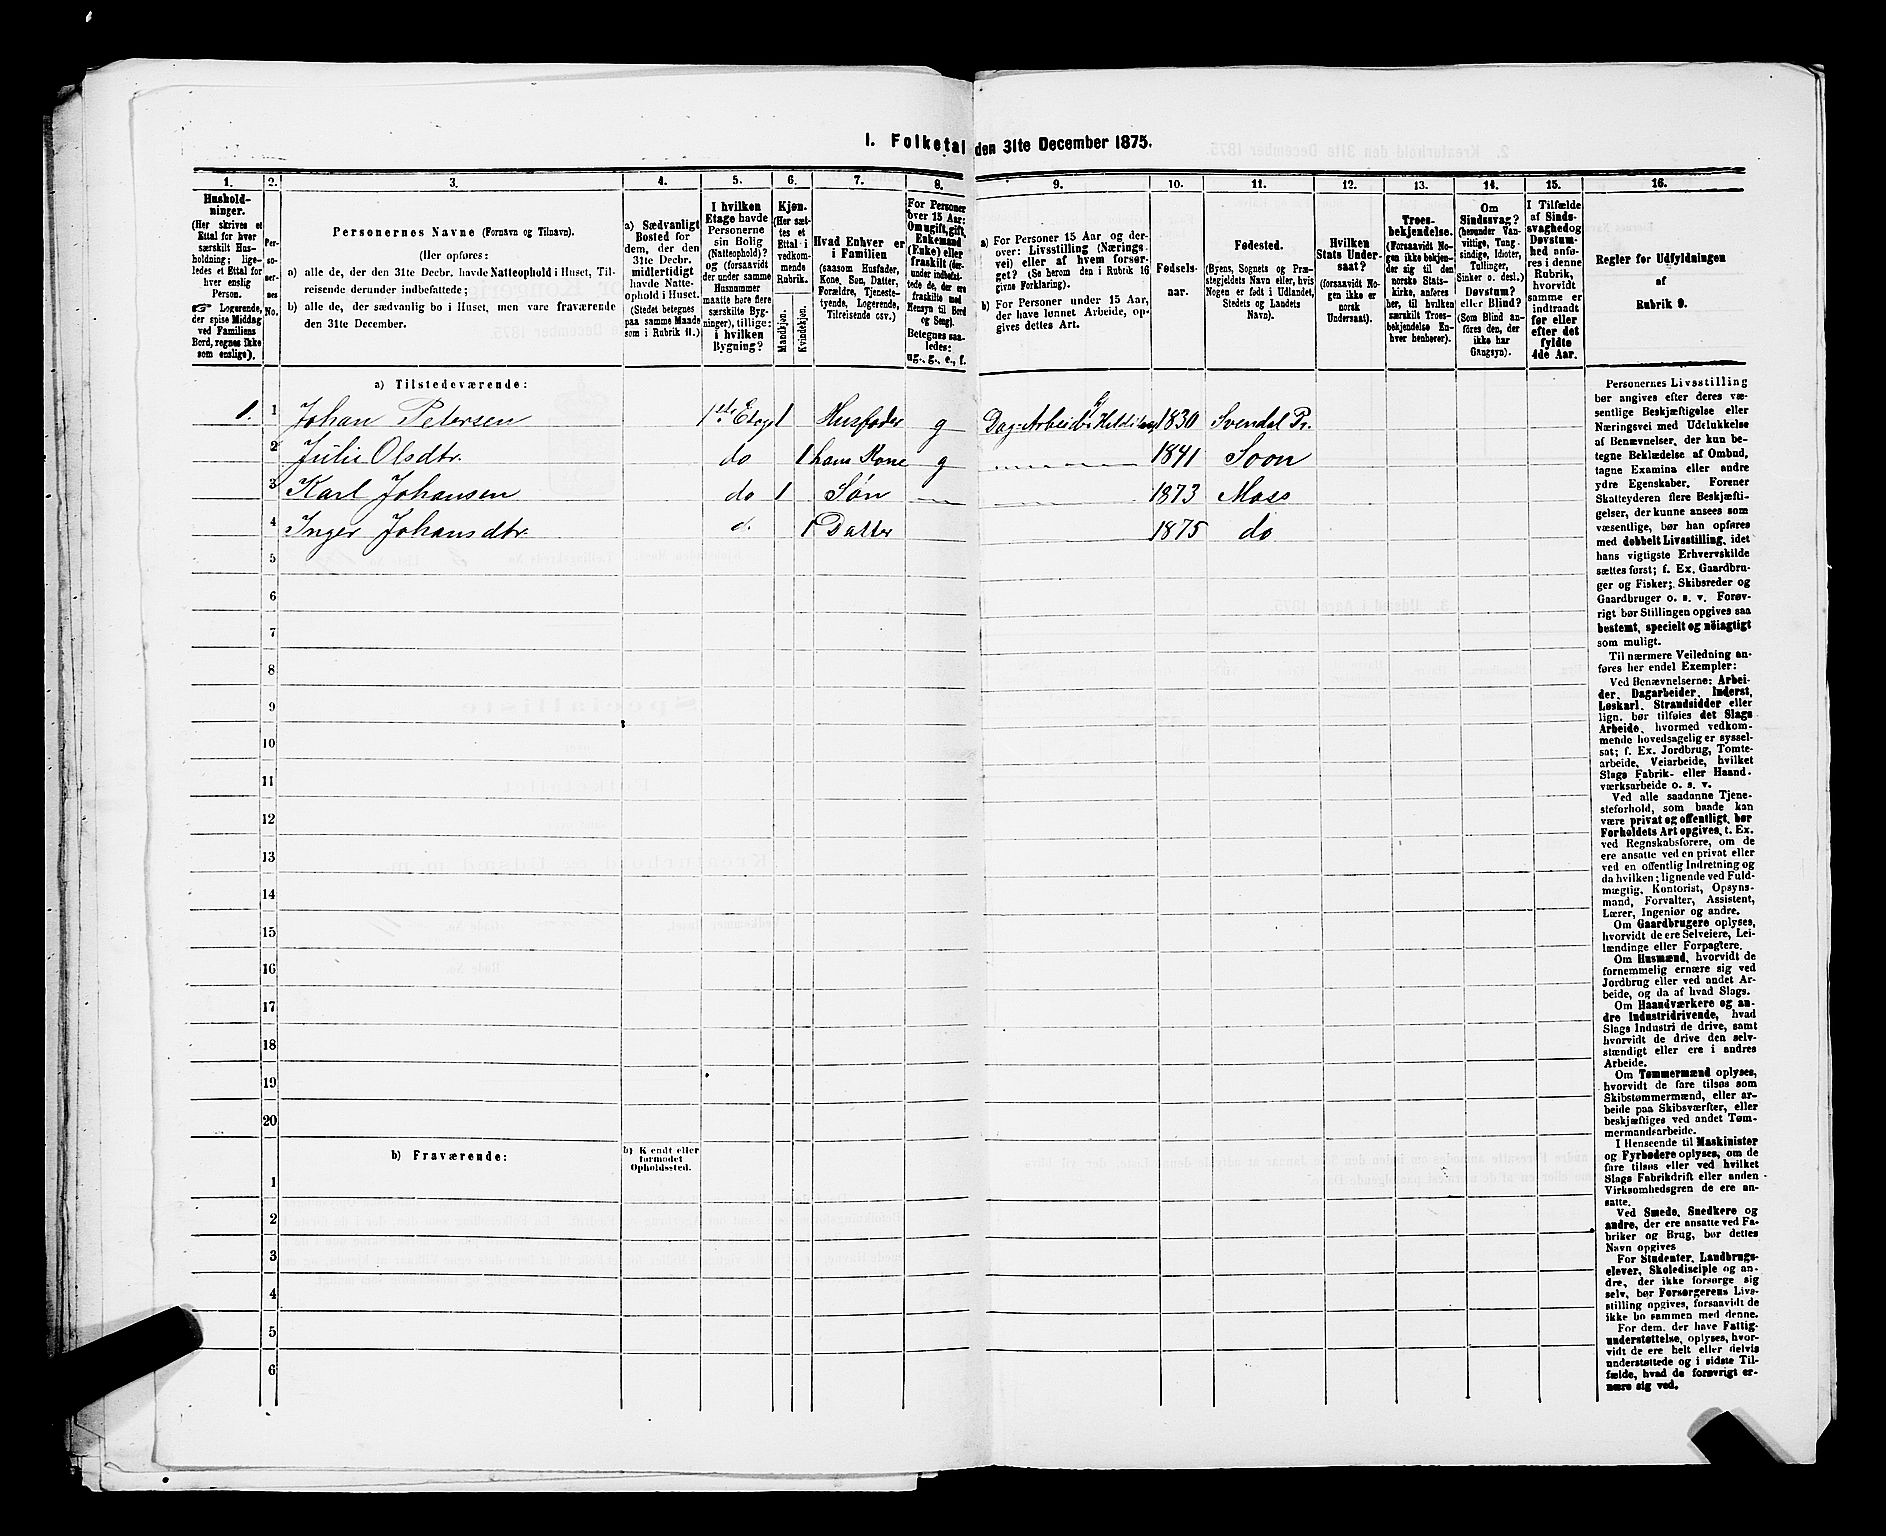 1. Folketal den 31te December 1875.
1. 2. 3. 4. 5. 6. 7. 8. 9. 10. 11. 12. 13. 14. 15. 16.
Hushold-
ninger.
(Her skrives et
Ettal for hver
særskilt Hus-
holdning; lige-
ledes et Ettal for
hver enslig
Person.
☞ Logerende,
der spise Middag
ved Familiens
Bord, regnes ikke
som enslige).
Per-
so-
ner-
nes
No.
Personernes Navne (Fornavn og Tilnavn).
(Her opføres:
a) alle de, der den 31te Decbr. havde Natteophold i Huset, Til-
reisende derunder indbefattede;
b) alle de, der sædvanlig bo i Huset, men vare fraværende
den 31te December.
a) Sædvanligt
Bosted for
dem, der den
31te Decbr.
midlertidigt
havde Natte-
ophold i Huset.
(Stedet betegnes
paa samme Maade
som i Rubrik 11.)
I hvilken
Etage havde
Personerne
sin Bolig
(Natteophold)?
og (forsaavidt
der under samme
Husnummer
maatte høre flere
særskilte Byg-
ninger), tillige:
i hvilken
Bygning?
Kjøn.
(Her sæt-
tes et
Ettal i
vedkom-
mende
Rubrik.
Mandkjøn.
Kvindekjøn.
Hvad Enhver er
i Familien
(saasom Husfader,
Kone, Søn, Datter,
Forældre, Tjeneste-
tyende, Logerende,
Tilreisende csv.)
For Personer
over 15 Aar:
Om ugift, gift,
Enkemand
(Enke) eller
fraskilt (der-
under indbefat-
tede de, der ere
fraskilte med
Hensyn til Bord
og Seng).
Betegnes saa-
ledes:
ug., g., e., f.
a) For Personer 15 Aar og der-
over: Livsstilling (Nærings-
vei) eller af hvem forsør-
get? (Se herom den i Rubrik 16
givne Forklaring).
b) For Personer under 15 Aar,
der have lønnet Arbeide, op-
gives dettes Art.
Fødsels-
aar.
Fødested.
(Byens, Sognets og Præ-
stegjeldets Navn eller, hvis
Nogen er født i Udlandet,
Stedets og Landets
Navn).
Hvilken
Stats Under-
saat?
(forsaavidt No-
gen ikke er
norsk
Undersaat).
Troes-
bekjendelse.
(Forsaavidt No-
gen ikke bekjen-
der sig til den
norske Stats-
kirke, anføres
her, til hvilken
særskilt Troes-
bekjendelse En-
hver henhører).
Om
Sindssvag?
(herunder Van-
vittige, Tung-
sindige, Idioter,
Tullinger,
Sinker o. desl.)
Døvstum?
eller Blind?
(Som Blind an-
føres den, der
ikke har
Gangsyn).
I Tilfælde
af Sinds-
svaghed og
Døvstum-
hed anfø-
res i denne
Rubrik,
hvorvidt
samme er
indtraadt
før eller
efter det
fyldte
4de Aar.
Regler for Udfyldningen
af
Rubrik 9.
a) Tilstedeværende:
1. 1 Johan Petersen 1ste Etage 1 Husfader g 1830
2 Julie Olsdtr. do 1 hans Kone g 1841 Soon
3 Karl Johansen do 1 Søn 1873 Moss
4 Inger Johansdtr. d. 1 Datter 1875 do
5
6
7
8
9
10
11
12
13
14
15
16
17
18
19
20
b) Fraværende:
b) Kjendt eller
formodet
Opholdssted.
1
2
3
4
5
6
Personernes Livsstilling
bør angives efter deres væ-
sentlige Beskjæftigelse eller
Næringsvei med Udelukkelse
af Benævnelser, der kun be-
tegne Beklædelse af Ombud,
tagne Examina eller andre
ydre Egenskaber. Forener
Skatteyderen flere Beskjæfti-
gelser, der kunne ansees som
væsentlige, bør han opføres
med dobbelt Livsstilling, idet
hans vigtigste Erhvervskilde
sættes først; f. Ex. Gaardbru-
ger og Fisker; Skibsreder og
Gaardbruger o. s. v. Forøv-
rigt bør Stillingen opgives saa
bestemt, specielt og nöiagtigt
som muligt.
Til nærmere Veiledning an-
føres her endel Exempler:
Ved Benævnelserne: Arbei-
der, Dagarbeider, Inderst,
Løskarl, Strandsidder eller
lign. bør tilføies det Slags
Arbeide, hvormed vedkom-
mende hovedsagelig er syssel-
sat; f. Ex. Jordbrug, Tomte-
arbeide, Veiarbeide, hvilket
Slags Fabrik- eller Haand-
værksarbeide o. s. v.
Ved alle saadanne Tjene-
steforhold, som baade kan
være privat og offentligt, bør
Forholdets Art opgives, t. Ex.
ved Regnskabsførere, om de
ere ansatte ved en privat eller
ved en offentlig Indretning og
da hvilken; lignende ved Fuld-
mægtig, Kontorist, Opsyns-
mand, Forvalter, Assistent,
Lærer, Ingeniør og andre.
Om Gaardbrugere oplyses,
hvorvidt de ere Selveiere, Lei-
lændinge eller Forpagtere.
Om Husmænd, hvorvidt de
fornemmelig ernære sig ved
Jordbrug eller ved andet Ar-
beide, og da af hvad Slags.
Om Haandværkere og an-
dre Industridrivende, hvad
Slags Industri de drive, samt
hvorvidt de drive den selv-
stændigt eller ere i andres
Arbeide.
Om Tømmermænd oplyses,
hvorvidt de fare tilsøs som
Skibstømmermænd, eller ar-
beide paa Skibsværfter, eller
beskjæftiges ved andet Tøm-
mermandsarbeide.
I Henseende til Maskinister
og Fyrbødere oplyses, om de
fare tilsøs eller ved hvilket
Slags Fabrikdrift eller anden
Virksomhedsgren de ere an-
satte.
Ved Smede, Snedkere og
andre, der ere ansatte ved Fa-
briker og Brug, bør dettes
Navn opgives
For Studenter, Landbrugs-
elever, Skoledisciple og an-
dre, der ikke forsørge sig
selv, bør Forsørgerens Livs-
stilling opgives, forsaavidt de
ikke bo sammen med denne.
For dem, der have Fattig-
understøttelse, oplyses, hvor-
vidt de ere helt eller delvis
understøttede og i sidste Til-
fælde, hvad de forøvrigt er-
nære sig ved.